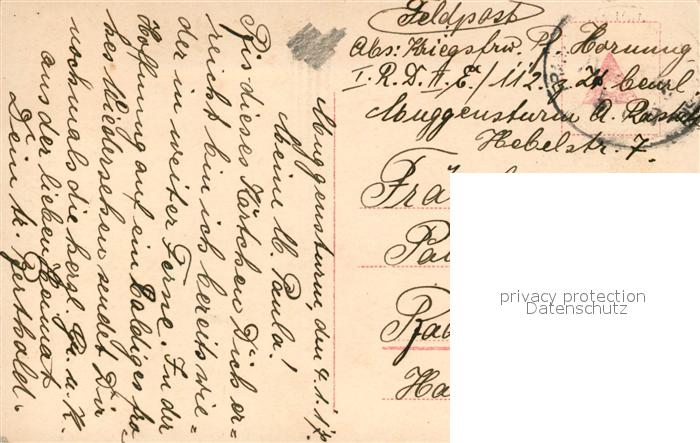 Feldpost
Abs: Kriegsfrw. Pf. Hornung
I. R. D. A. E. / 112. z. Zt. beurl.
Muggensturm A. Rastatt
Hebelstr. 7.
Muggensturm, den 4.1.17.
Meine lb. Paula!
Bis dieses Kärtchen Dich er=
reicht bin ich bereits wie=
der in weiter Ferne. In der
Hoffnung auf ein baldiges fro
hes Wiedersehen sendet Dir
nochmals die herzl. Gr. u. K.
aus der lieben Heimat
Dein tr. Berthold.
privacy protection
Datenschutz